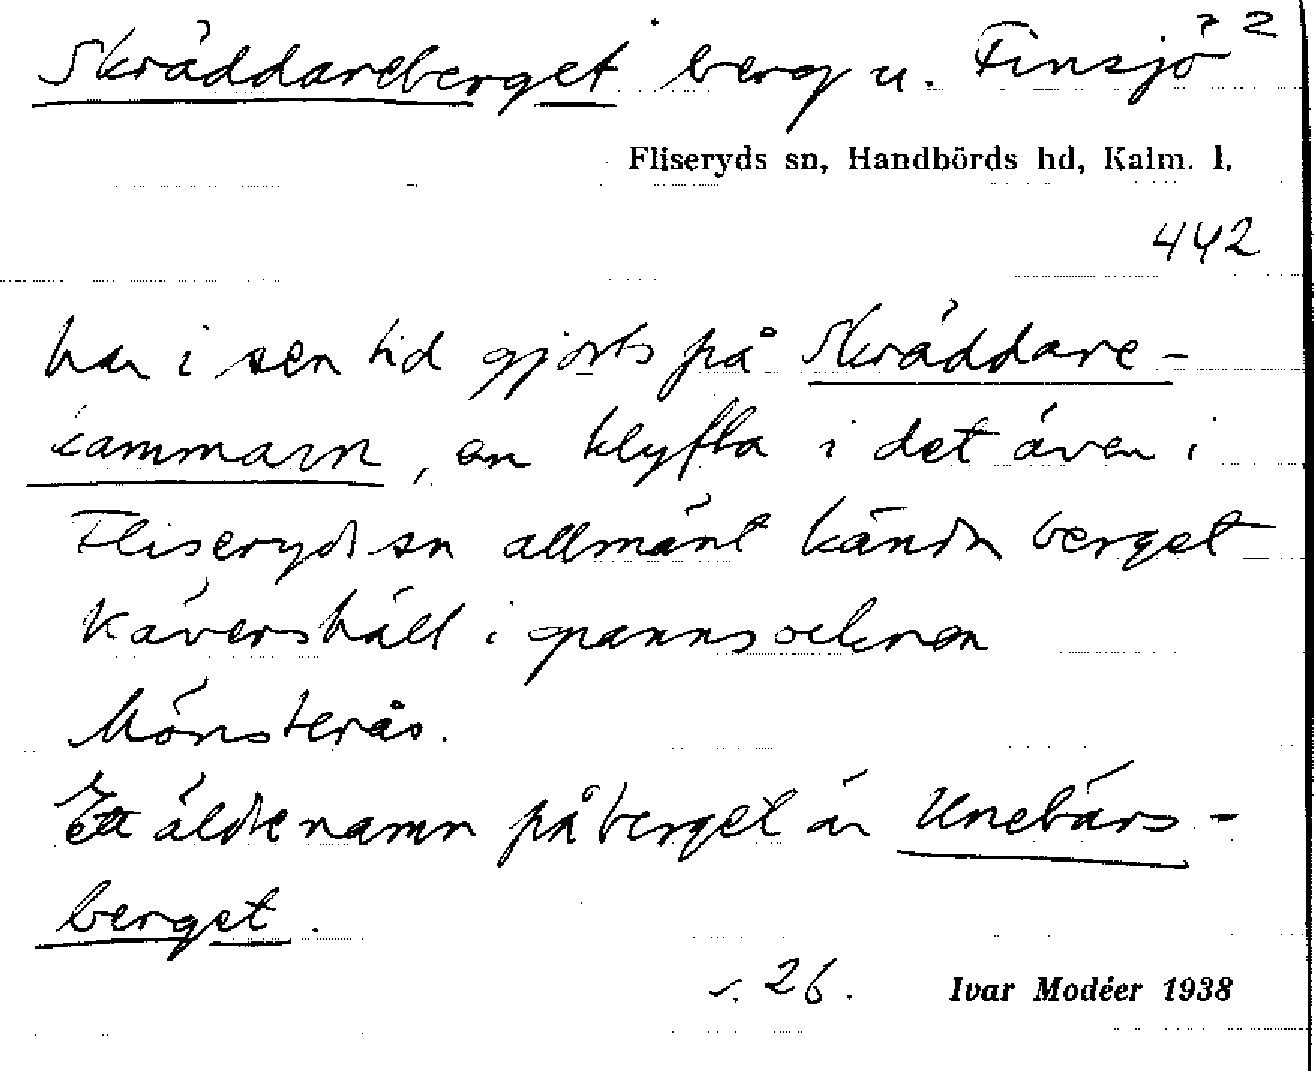 Skräddareberget berg u. Finsjö 2
Fliseryds sn, Handbörds hd, Kalm. l.
442
har i sen tid gjorts på Skräddare-
kammarn, en klyfta i det även i
Fliseryds sn allmänt kända berget
Kävershäll i grannsocknen
Mönsterås.
Ett äldre namn på berget är Unebärs-
berget.
s. 26.
Ivar Modéer 1938